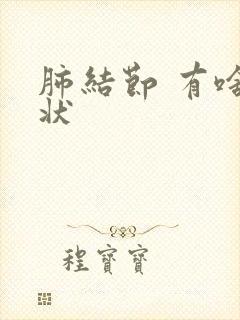 肺結節 有啥
状
程寶寶